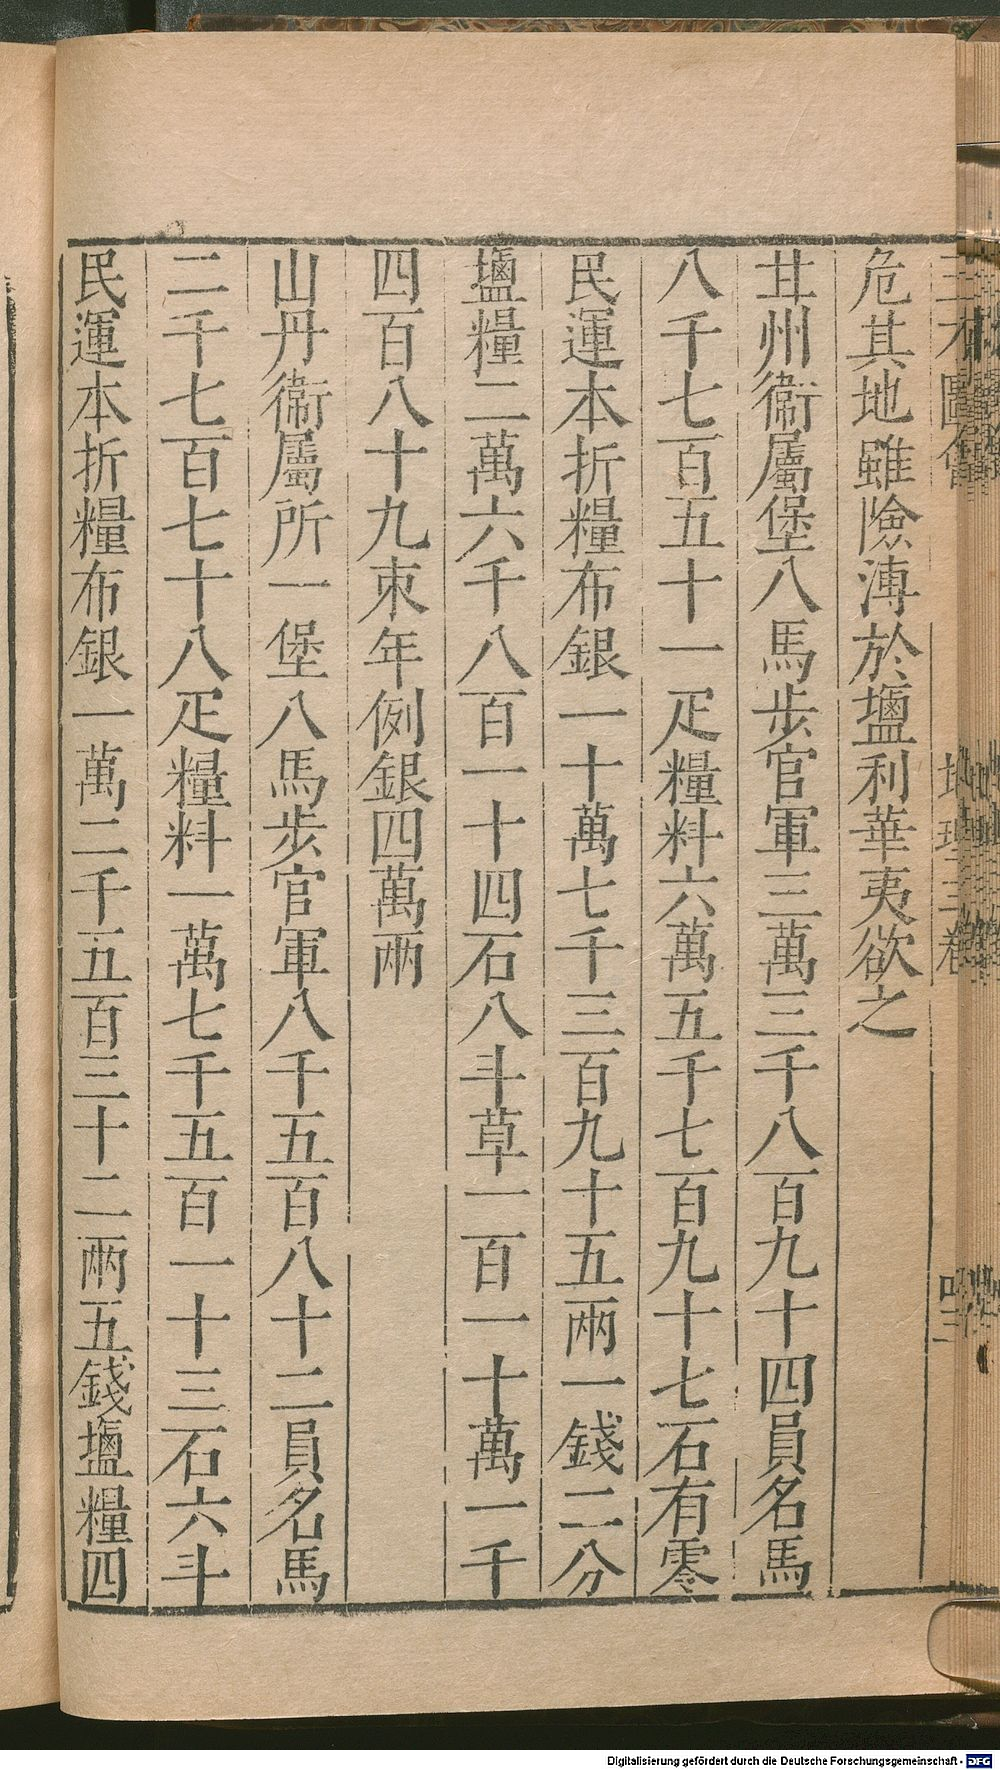 三才圖會 地理三卷
危其地雖險漙於鹽利華夷欲之
甘州衞屬堡八馬步官軍三萬三千八百九十四員名馬
八千七百五十一疋糧料六萬五千七百九十七石有零
民運本折糧布銀一十萬七千三百九十五兩一錢二分
鹽糧二萬六千八百一十四石八斗草一百一十萬一千
四百八十九束年例銀四萬兩
山丹衞屬所一堡八馬步官軍八千五百八十二員名馬
二千七百七十八疋糧料一萬七千五百一十三石六斗
民運本折糧布銀一萬二千五百三十二兩五錢鹽糧四
Digitalisierung gefördert durch die Deutsche Forschungsgemeinschaft - DFG